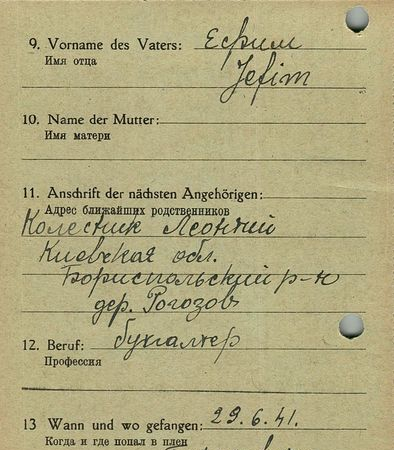 9. Vorname des Vaters: Ефим
Имя отца
Jefim
10. Name der Mutter:
Имя матери
11. Anschrift der nächsten Angehörigen:
Адрес ближайших родственников
Колесник Леонтий
Киевская обл.
Бориспольский р-н
дер. Рогозов
12. Beruf: бухгалтер
Профессия
13 Wann und wo gefangen: 29.6.41.
Когда и где попал в плен